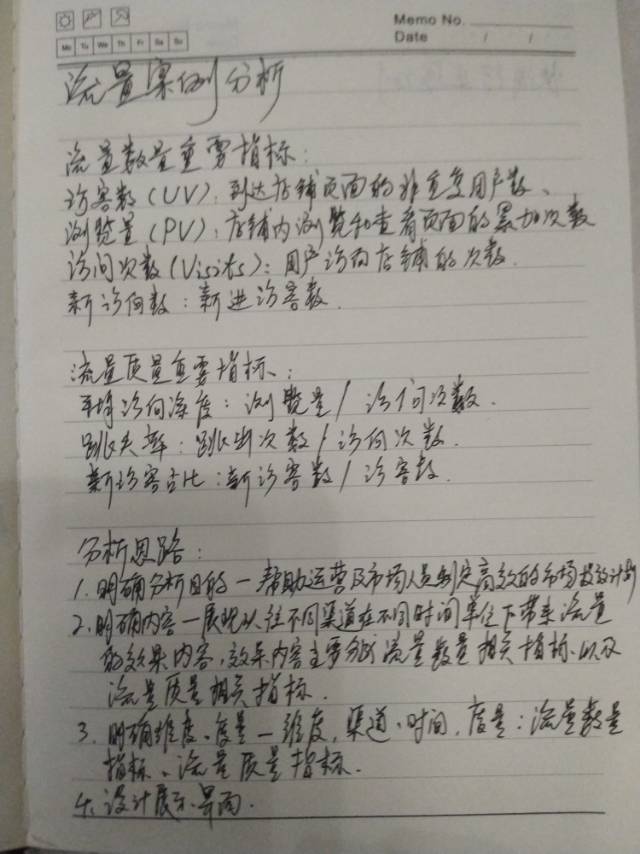 Memo No.
Date / /
Mo Tu We Th Fr Sa Su
流量案例分析
流量数量重要指标:
访客数(UV):到达店铺页面的非重复用户数、
浏览量(PV):店铺内浏览和查看页面的累加次数
访问次数(Visits):用户访问店铺的次数.
新访问数:新进访客数.
流量质量重要指标:
平均访问深度:浏览量/访问次数.
跳失率:跳出次数/访问次数.
新访客占比:新访客数/访客数.
分析思路:
1.明确分析目的—帮助运营及市场人员制定高效的市场投放计划
2.明确内容—展现以往不同渠道在不同时间单位下带来流量
的效果内容,效果内容主要分成流量数量相关指标以及
流量质量相关指标.
3.明确维度、度量—维度,渠道、时间,度量:流量数量
指标、流量质量指标.
4.设计展示界面.